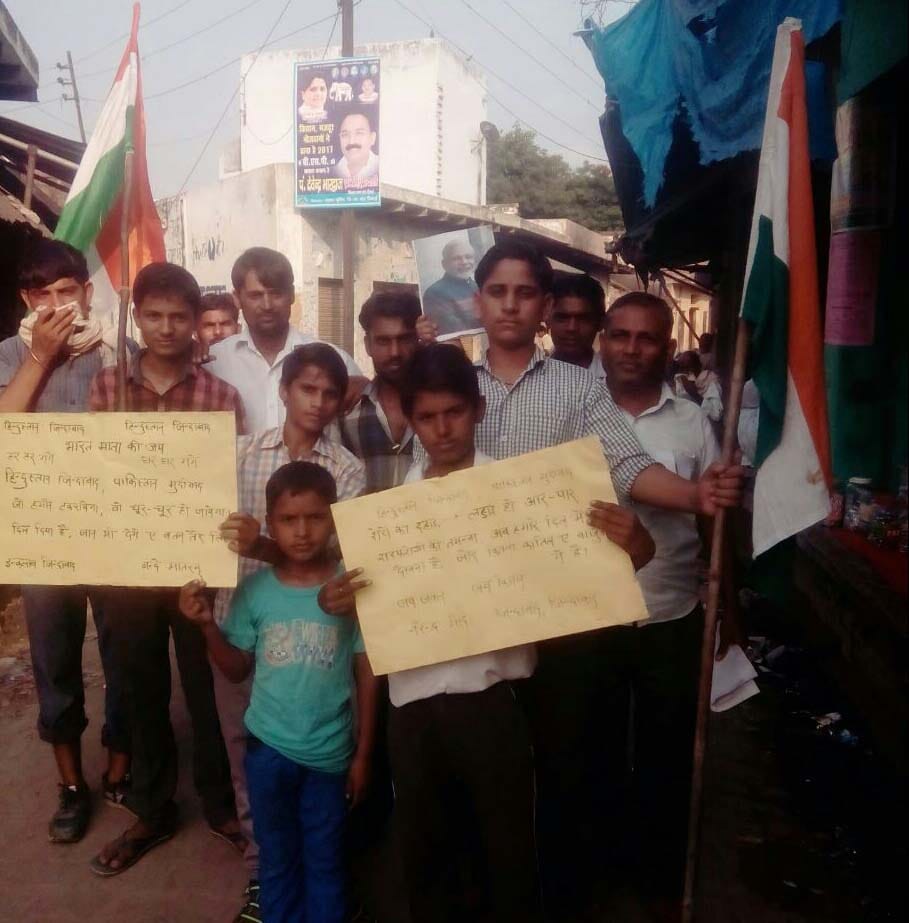 किसान, मजदूर
नौजवानों ने
ठाना है 2017
बी.एस.पी.
पं. देवेन्द्र भारद्वाज
हिन्दुस्तान जिन्दाबाद हिन्दुस्तान जिन्दाबाद
भारत माता की जय
हर हर गंगे घर घर गंगे
हिन्दुस्तान जिन्दाबाद, पाकिस्तान मुर्दाबाद
जो हमसे टकरायेगा, वो चूर-चूर हो जायेगा
दिल दिया है, जान भी देंगे ए वतन तेरे लिए
इन्कलाब जिन्दाबाद वन्दे मातरम्
हिन्दुस्तान जिन्दाबाद, पाकिस्तान मुर्दाबाद
लड़ाई हो आर-पार
सरफरोशी की तमन्ना अब हमारे दिल में
देखना है, जोर कितना बाजु ए कातिल
में है।
जय जवान जय किसान
नरेन्द्र मोदी जिन्दाबाद, जिन्दाबाद